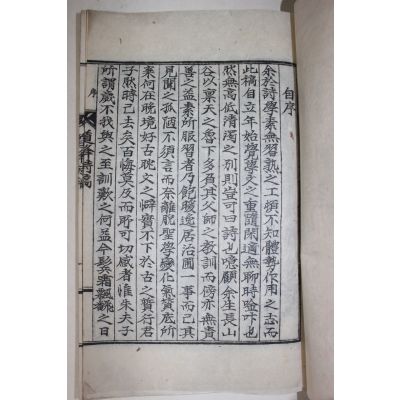 自序
余於詩學素無習熟之工煩不知體勢作用之志而
此稿自立年始覺學文之重隨閑適無聊時啽吟也
然無高低清濁之別則豈可曰詩也噫顧余生長山
谷以稟天之魯下多負其父師之教訓而傍亦無責
善之益素所服習者乃飽腹逸居治圃一事而已其
見聞之孤陋不須言而奈離肥聖學變化氣質底所
來何在晩境好古耽文之癖實不下於古之質行君
子然時已去矣百悔莫及而所可切感者惟朱夫子
所謂歲不我與之至訓歎之何益今鬂霜飄絲之日
序
詩稿